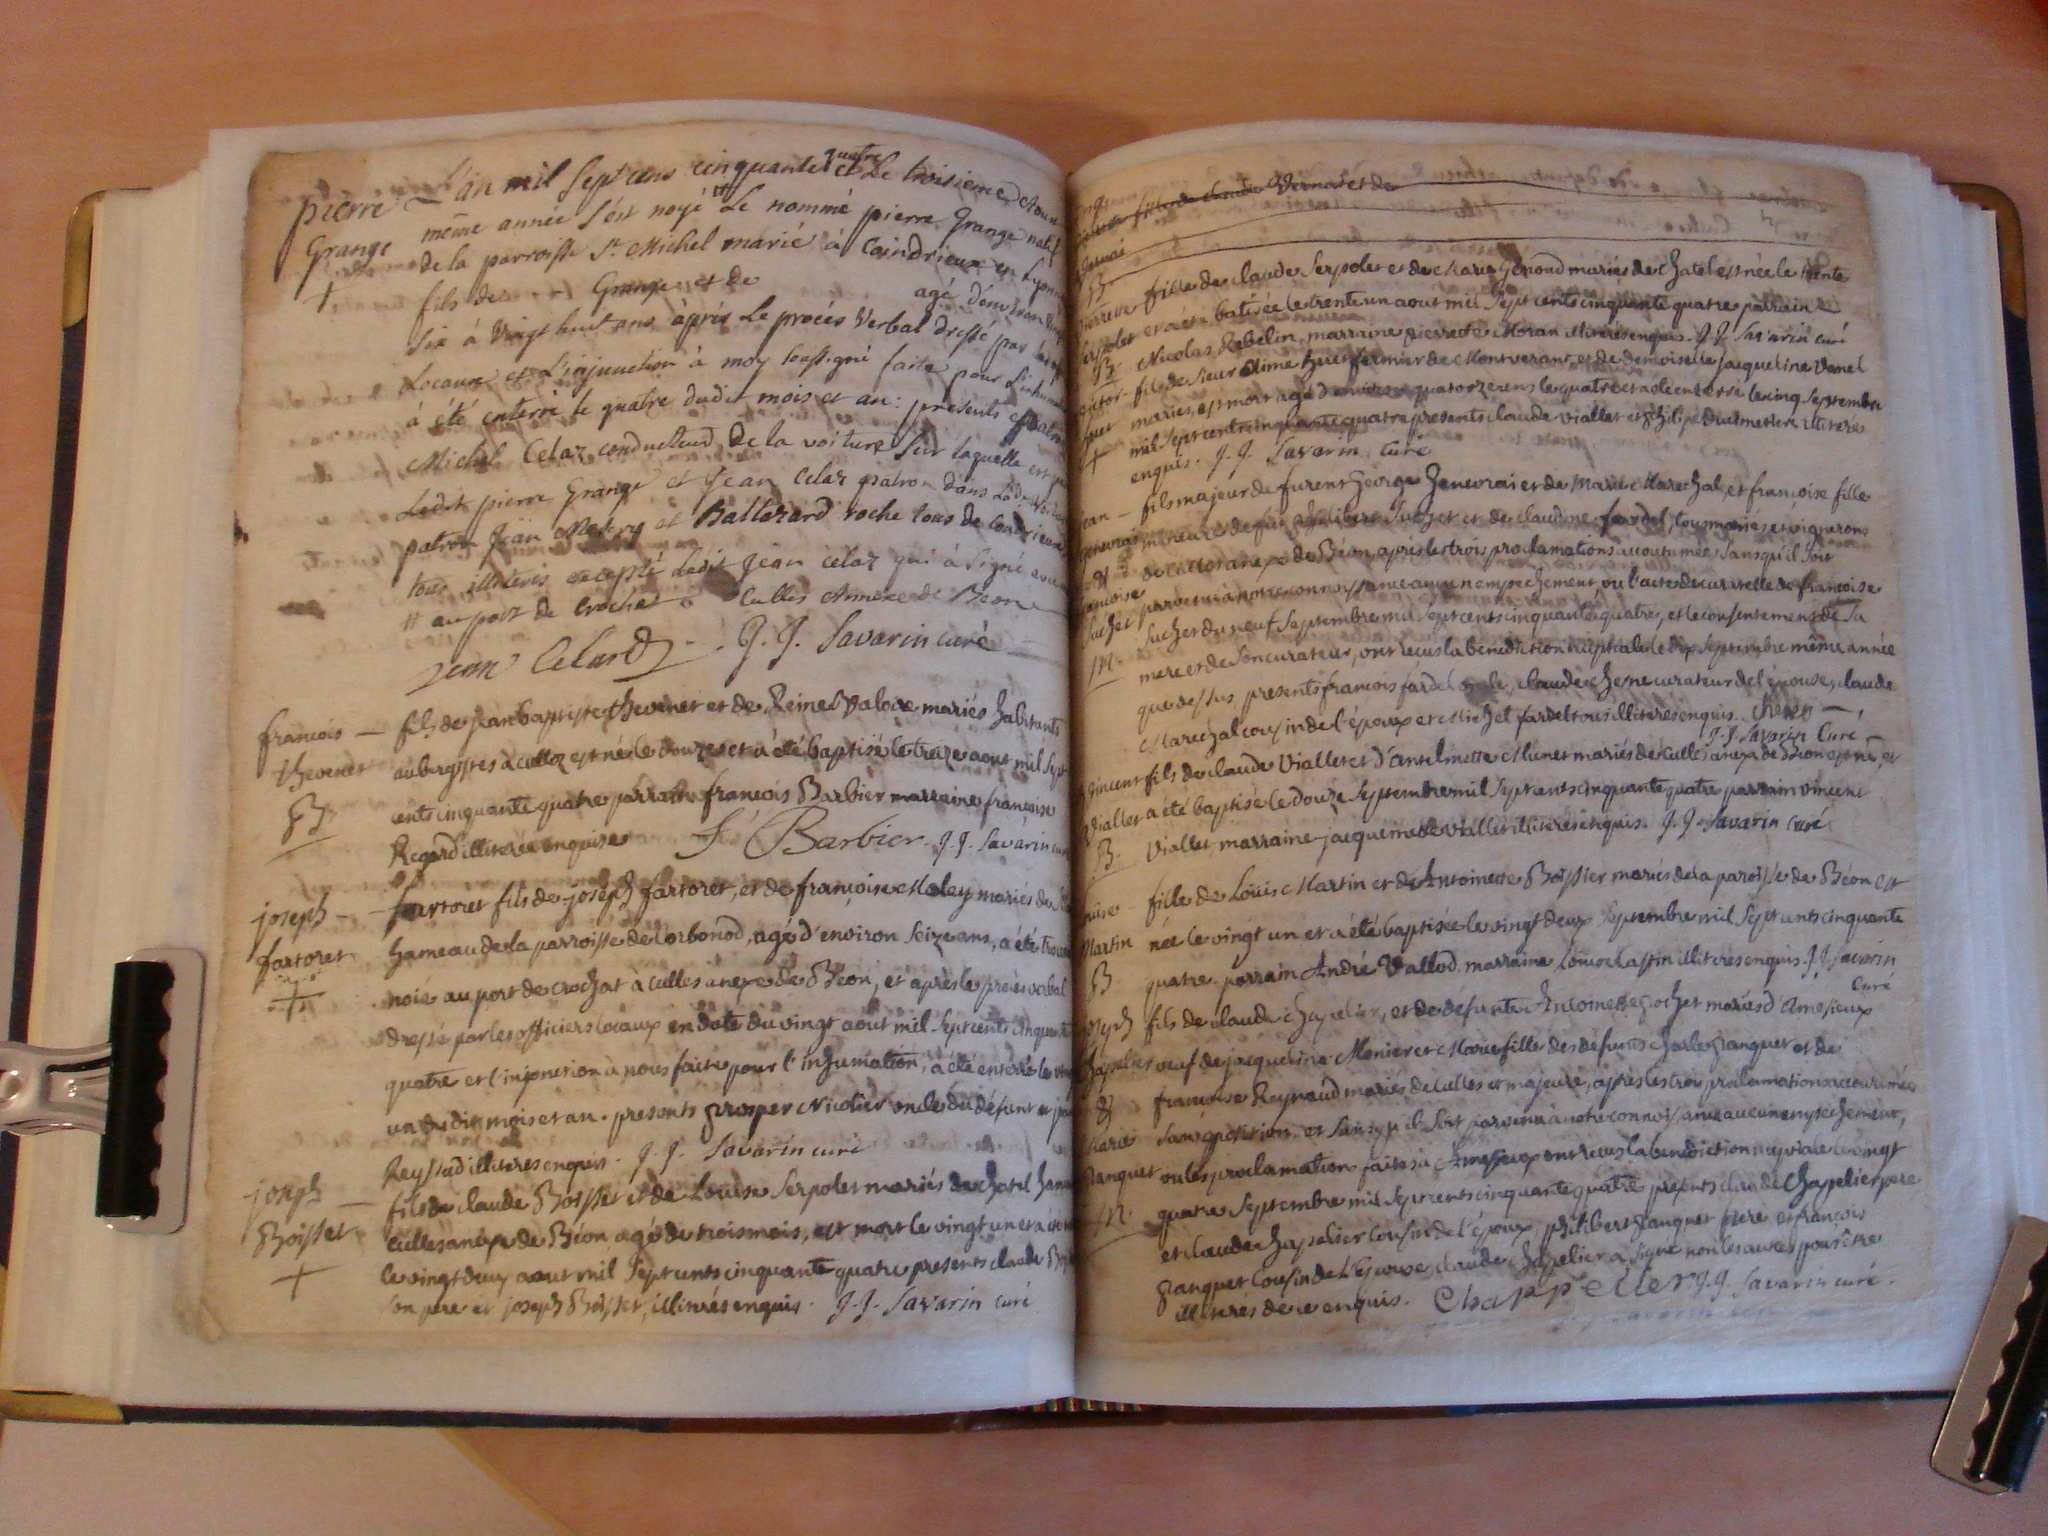 pierre — L'an mil Sept cens cinquante quatre et Le troisieme Aoust
Grange même année S'est noyé Le nommé pierre Grange natif
+ de la parroisse St Michel marié à Coindrieux en Lyonn
fils de Grange et de agé d'environ
Six à Vingt huit ans après Le procés Verbal dressé par les
Locaux et L'injonction à moy Soussigné faite pour L'inhuma
à été enterré le quatre dudit mois et an: présents
Michel Celaz conducteur De la voiture Sur laquelle
Ledit pierre Grange et Jean Celaz patron dans Ladte Voiture
patron Jean et Baltezard roche tous de Condrieux
tous illiterés excepté Ledit Jean Celaz qui à Signé
# au port de Crochet à Culles Annexe de Beon
Jean Celard . J. J. Savarin curé
francois — fils de jean baptiste thevenet et de Reine Valove mariés habitants
thevenet aubergistes à culloz est né le douze et a été baptisé le treize aout mil Sept
B cents cinquante quatre parrain francois Barbier marraine francoise
Regard illiterée enquise F Barbier. J. J. Savarin curé
joseph — fartoret fils de joseph fartoret, et de francoise Maley mariés de
fartoret hameau de la parroisse de Corbonod, agé d'environ Seize ans, a été trouvé
+ noié au port de crochat à culles anexe de Béon, et après le procès verbal
dressé par les officiers locaux en date du vingt aout mil Sept cents cinquante
quatre et l'injonction à nous faite pour l'inhumation, a été enterré le vingt
un du dit mois et an. presents prosper Nicolier oncle du défunt et
Reystad illiterés enquis. J. J. Savarin curé
joseph — fils de claude Boisset et de Louise Serpolet mariés de chatel hameau
Boisset culles anexe de Béon agé de trois mois, est mort le vingt un et a été
+ le vingt deux aout mil Sept cents cinquante quatre presents claude Boisset
Son pere et joseph Boisset, illiterés enquis. J. J. Savarin curé
fille de claude Vernaz et de
fille de claude Serpolet et de Marie Genoud mariés de chatel est née le trente
Serpolet et a été batisée le trente un aout mil Sept cents cinquante quatre parrain
B Nicolas Rebelin, marraine pierrette Moran illiterés enquis. J. J. Savarin curé
fils de Sieur Aime huet fermier de Montverant, et de demoiselle jacqueline Vanel
huet mariés, est mort agé d'environ quatorze ans le quatre et a été enterré le cinq Septembre
+ mil Sept cents cinquante quatre presents claude viallet et philipe Dumestier illiterés
enquis. J. J. Savarin Curé
jean — fils majeur de furent George Genevrai et de Marie Marechal, et francoise fille
mineure de feu philibert Suchet et de claudine fardel, tous mariés et vignerons
& de culloz anexe de Béon, après les trois proclamations accoutumées Sans qu'il Soit
francoise parvenu à notre connoissance aucun empechement, vu l'acte de curatelle de francoise
Suchet Suchet du neuf Septembre mil Sept cents cinquante quatre, et le consentement de Sa
M. mere et de Son curateur, ont reçus la bénédiction nuptiale le dix Septembre même année
que dessus, presents francois fardel oncle, claude chene curateur de l'épouse, claude
Marechal cousin de l'époux et Michel fardel tous illiterés enquis.
J. J. Savarin Curé
vincent fils de claude Viallet et d'antelmette Munet mariés de culles anexe de Béon est né, et
viallet a été baptisé le douze Septembre mil Sept cents cinquante quatre parrain vincent
B. Viallet, marraine jacquemette viallet illiterés enquis. J. J. Savarin curé
fille de Louis Martin et de Antoinette Boissier mariés de la paroisse de Béon est
Martin née le vingt un et a été baptisée le vingt deux Septembre mil Sept cents cinquante
B quatre. parrain André Vallod, marraine Louise Lastin illiterés enquis. J. J. Savarin
Curé
joseph fils de claude chapelier, et de défunte Antoinette mariés d'Ameysieux
chapelier veuf de jacqueline Monier et Marie fille des défunts charle Janquet et de
& francoise Reynaud mariés de Culles et majeure, après les trois proclamations accoutumées
Marie Sans opposition, et Sans qu'il Soit parvenu à notre connoissance aucun empechement,
Janquet vu les proclamations faites à Ameysieux ont reçus la benediction nuptiale le vingt
M. quatre Septembre mil Sept cents cinquante quatre presents claude chapelier pere
et claude chapelier cousin de l'époux, philibert Janquet frere et francois
Janquet cousin de L'épouse, claude chapelier a Signé non les autres pour être
illiterés de ce enquis. Chappelier J. J. Savarin curé.